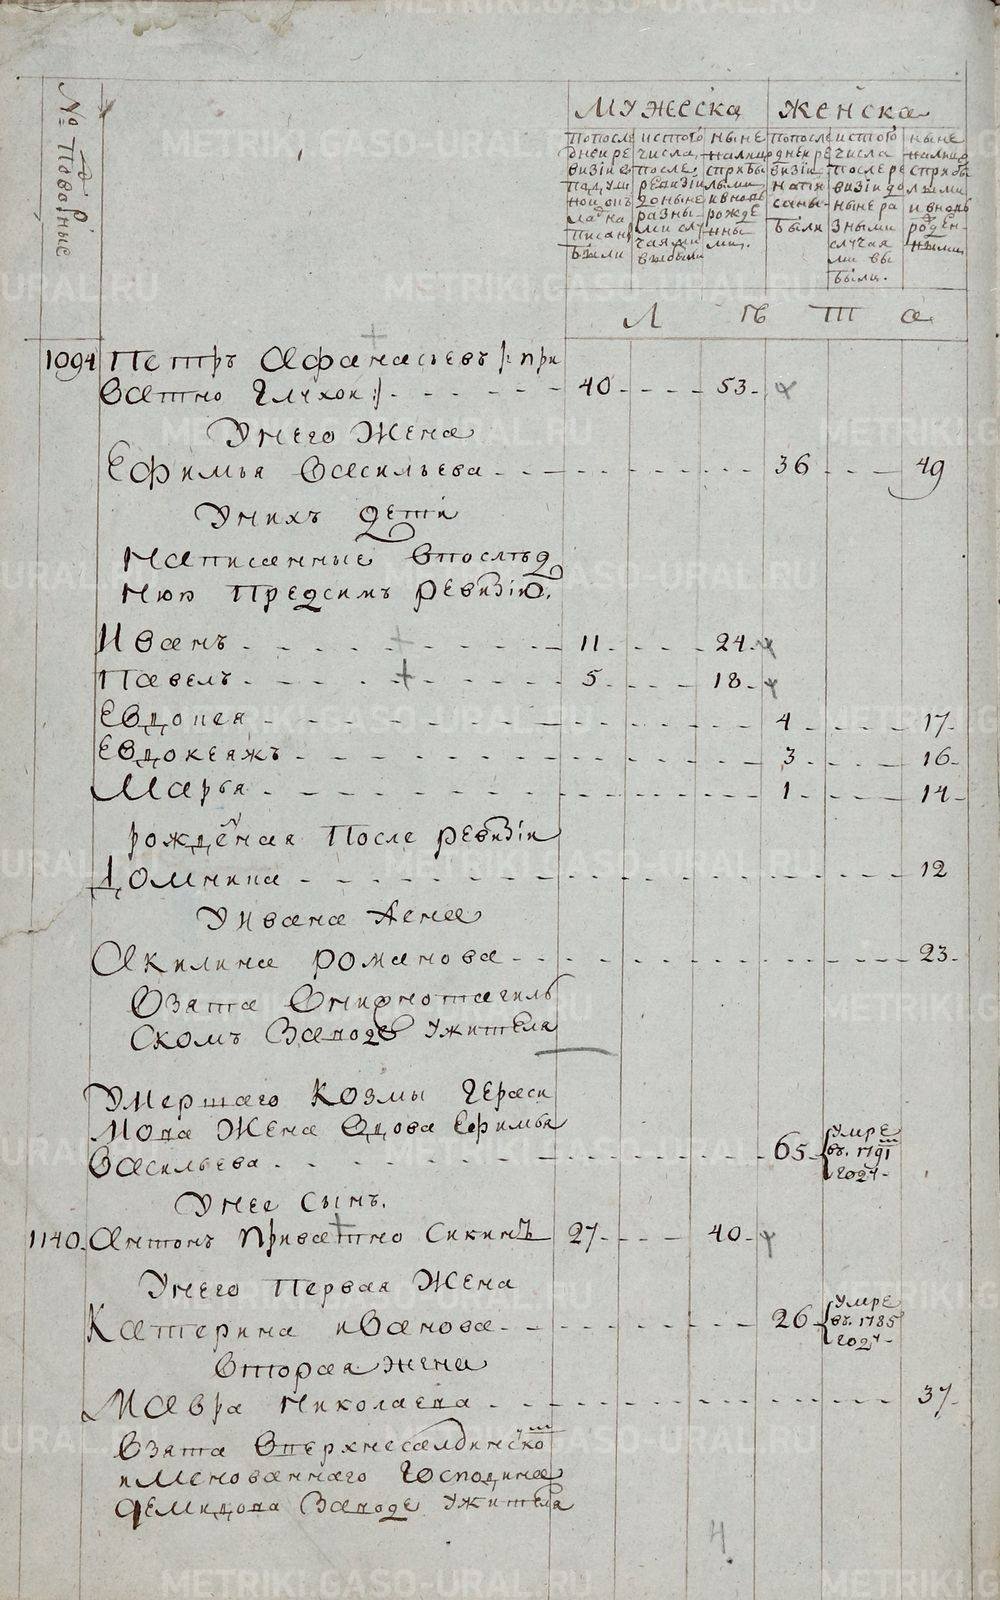 № Подворные
Мужеска
Женска
по после
дней ре
визіи в
подуш
ной окъ
ладъ на
писаны
были
ис того
числа
после
ревизіи
доныне
разны
ми слу
чаями
выбыли
ныне
на лицо
с прибы
лыми
и вновь
рожде
нны
ми.
по после
дней ре
визіи
написаны
были
ис того
числа
после ре
визіи до
ныне ра
зными
случая
ми вы
были.
ныне
на лицо
с прибы
лыми
и вновь
рожден
ными
Л ѣ т а
1094 Петръ Афанасьевъ /: при
ватно Глухок :/ 40 53
У него жена
Ефимья Васильева 36 49
У нихъ дети
написанные в последъ
нюю предсимъ ревизію.
Иванъ 11 24
Павелъ 5 18
Евдокея 4 17
Евдокеяжъ 3 16
Марья 1 14
рожденая после ревизіи
Домника 12
У Ивана жена
Акилина Романова 23
взята в Нижнотагиль
скомъ заводе у жителя
Умершаго Козмы Гераси
мова жена вдова Ефимья
Васильева 65 умре
въ 1791
году
У нее сынъ.
1140 Антонъ приватно Сикинъ 27 40
У него первая жена
Катерина Иванова 26 умре
въ 1785
году
вторая жена
Мавра Николаева 37
взята в Верхнесалдинско
именованнаго господина
Демидова заводе у жителя
4.
METRIKI.GASO-URAL.RU